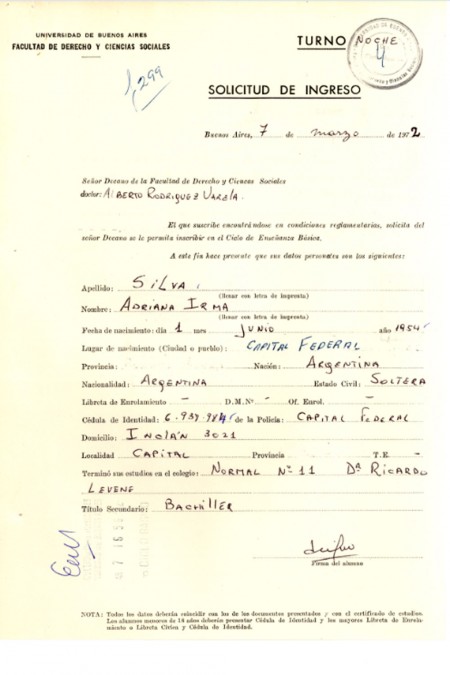 UNIVERSIDAD DE BUENOS AIRES
FACULTAD DE DERECHO Y CIENCIAS SOCIALES
TURNO NOCHE
4
1,299
SOLICITUD DE INGRESO
Buenos Aires, 7 de marzo de 1972
Señor Decano de la Facultad de Derecho y Ciencias Sociales
doctor: ALBERTO RODRIGUEZ VARELA.
El que suscribe encontrándose en condiciones reglamentarias, solicita del
señor Decano se le permita inscribir en el Ciclo de Enseñanza Básica.
A este fin hace presente que sus datos personales son los siguientes:
Apellido: SILVA
(llenar con letra de imprenta)
Nombre: ADRIANA IRMA
(llenar con letra de imprenta)
Fecha de nacimiento: día 1 mes JUNIO año 1954
Lugar de nacimiento (Ciudad o pueblo): CAPITAL FEDERAL
Provincia: Nación: ARGENTINA
Nacionalidad: ARGENTINA Estado Civil: SOLTERA
Libreta de Enrolamiento - D.M.Nº - Of. Enrol. -
Cédula de Identidad: 6.939.984 de la Policía: CAPITAL FEDERAL
Domicilio: INCLÁN 3021
Localidad CAPITAL Provincia T.E. -
Terminó sus estudios en el colegio: NORMAL Nº 11 Dr RICARDO
LEVENE
Título Secundario: BACHILLER
Firma del alumno
NOTA: Todos los datos deberán coincidir con los de los documentos presentados y con el certificado de estudios.
Los alumnos menores de 18 años deberán presentar Cédula de Identidad y los mayores Libreta de Enrola-
miento o Libreta Cívica y Cédula de Identidad.